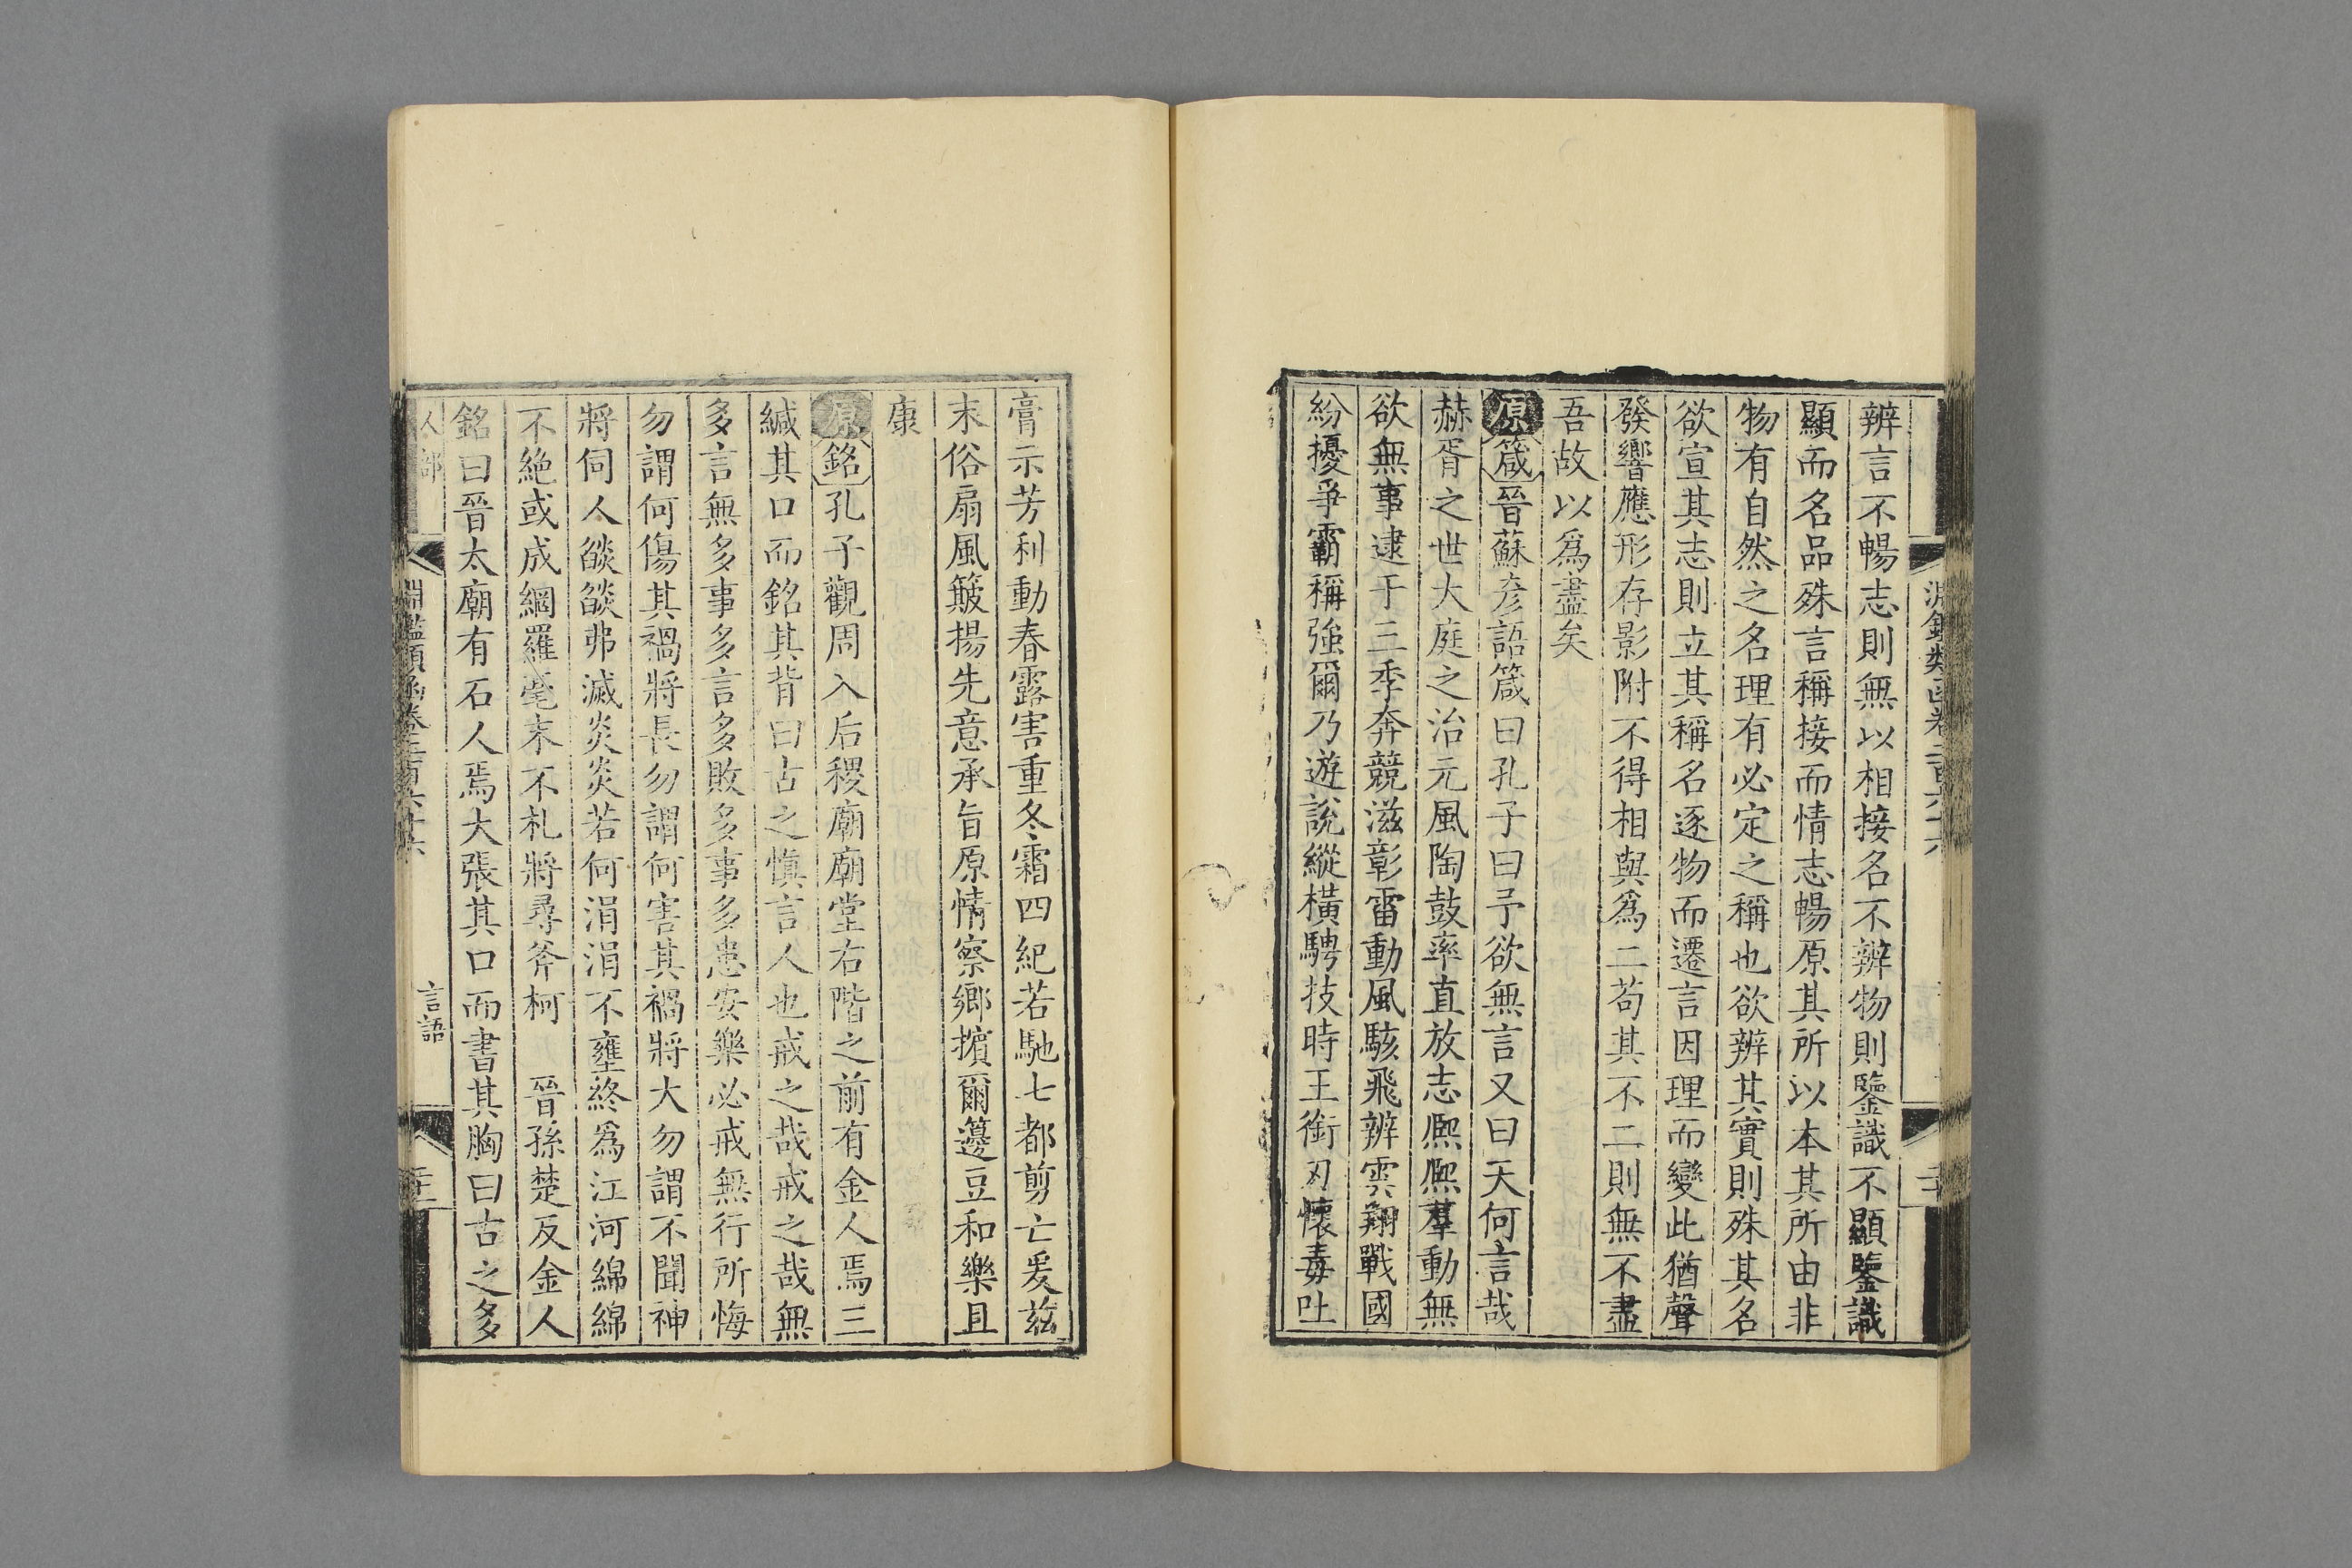 辨言不暢志則無以相接名不辨物則鑒識不顯鑒識
顯而名品殊言稱接而情志暢原其所以本其所由非
物有自然之名理有必定之稱也欲辨其實則殊其名
欲宣其志則立其稱名逐物而遷言因理而變此猶聲
發響應形存影附不得相與為二苟其不二則無不盡
吾故以為盡矣
原箴晉蘇彥語箴曰孔子曰予欲無言又曰天何言哉
赫胥之世大庭之治元風陶鼓率直放志熙熙羣動無
欲無事逮于三季奔競滋彰雷動風駭飛辨雲翔戰國
紛擾爭霸稱強爾乃遊說縱橫騁技時王銜刃懷毒吐
膏示芳利動春露害重冬霜四紀若馳七都剪亡爰茲
末俗扇風簸揚先意承旨原情察鄉擯爾籩豆和樂且
康
原銘孔子觀周入后稷廟廟堂右階之前有金人焉三
緘其口而銘其背曰古之慎言人也戒之哉戒之哉無
多言無多事多言多敗多事多患安樂必戒無行所悔
勿謂何傷其禍將長勿謂何害其禍將大勿謂不聞神
將伺人燄燄弗滅炎炎若何涓涓不壅終為江河綿綿
不絕或成網羅毫末不札將尋斧柯 晉孫楚反金人
銘曰晉太廟有石人焉大張其口而書其胸曰古之多
人部 淵鑑類函卷二百六十六 言語 二十一